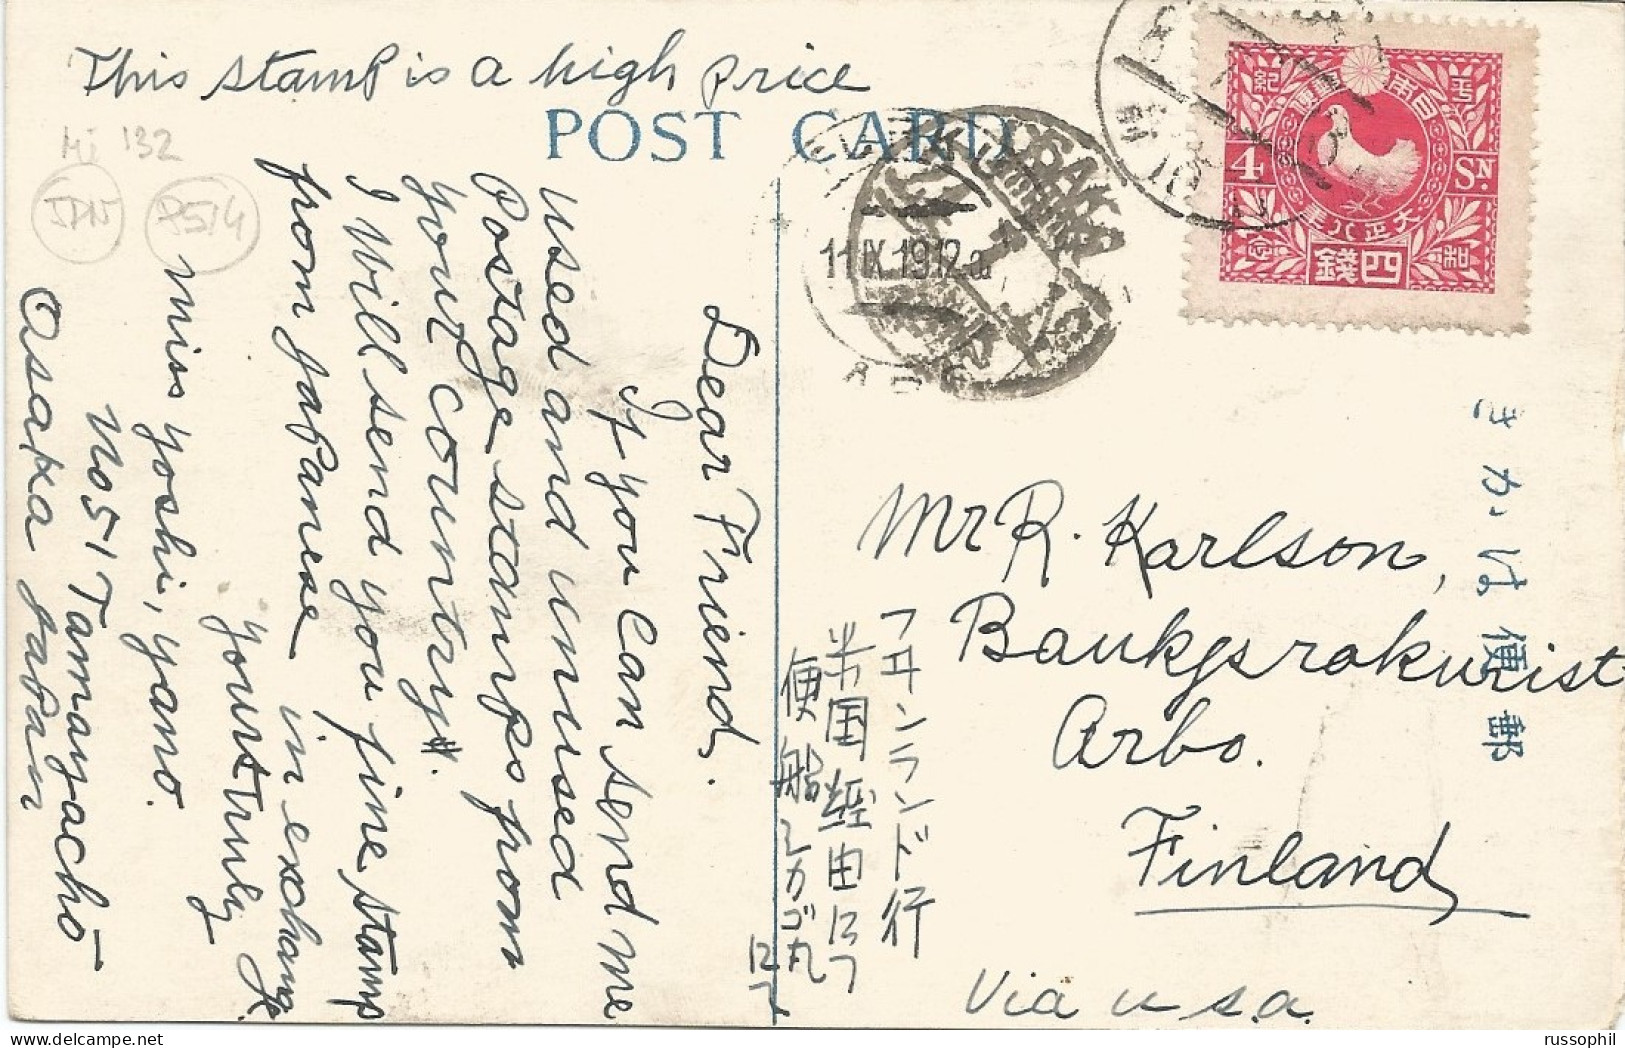 This stamp is a high price
POST CARD
Mi 132
JPN
P514
Dear Friend.
If you can send me
used and unused
Postage stamps from
your country.
I will send you fine stamp
from Japanese in exchange
yours truly
Miss yoshi, yano.
No 51 Tamayachō
Osaka Japan
11 IX 19 12.a
OSAKA
4 SN.
四錢
きかは便郵
Mr R. Karlson,
Bankgsrokurist
Arbo.
Finland
Via U.S.A.
フヰンランド行
米国経由ニテ
便船シカゴ丸
ニテ
russophil
www.delcampe.net